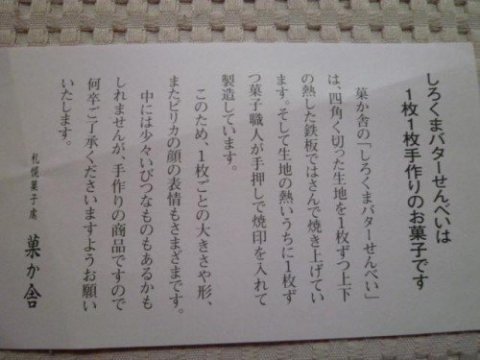 しろくまバターせんべいは
1枚1枚手作りのお菓子です
菓か舎の「しろくまバターせんべい」
は、四角く切った生地を1枚ずつ上下
の熱した鉄板ではさんで焼き上げてい
ます。そして生地の熱いうちに1枚ず
つ菓子職人が手押しで焼印を入れて
製造しています。
このため、1枚ごとの大きさや形、
またピリカの顔の表情もさまざまです。
中には少々いびつなものもあるかも
しれませんが、手作りの商品ですので
何卒ご了承くださいますようお願い
いたします。
札幌菓子處 菓か舎